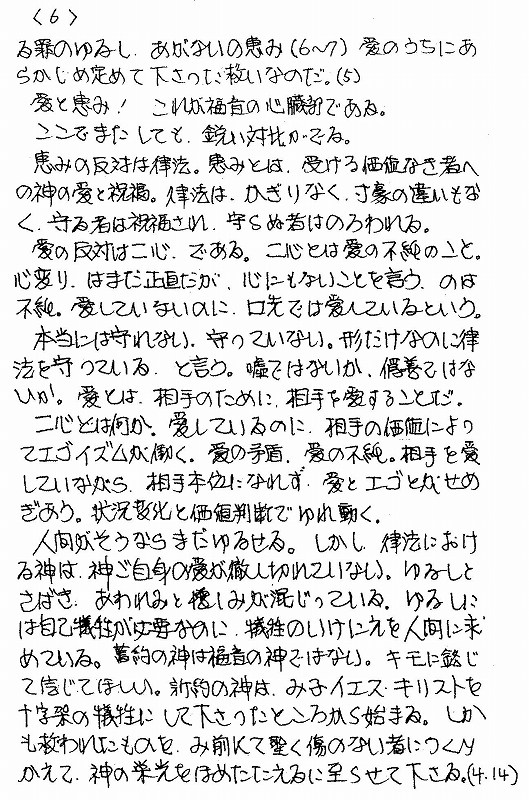 〈6〉
る罪のゆるし、あがないの恵み(6〜7) 愛のうちにあ
らかじめ定めて下さった救いなのだ。(5)
愛と恵み! これが福音の心臓部である。
ここでまたしても、鋭い対比がでる。
恵みの反対は律法。恵みとは、受ける価値なき者へ
の神の愛と祝福。律法は、かぎりなく、寸豪の違いもな
く、守る者は祝福され、守らぬ者はのろわれる。
愛の反対は二心、である。二心とは愛の不純のこと。
心変り、はまだ正直だが、心にもないことを言う、のは
不純。愛していないのに、口先では愛しているという。
本当には守れない、守っていない。形だけなのに律
法を守っている、と言う。嘘ではないか、偽善ではな
いか。愛とは、相手のために、相手を愛することだ。
二心とは何か。愛しているのに、相手の価値によっ
てエゴイズムが働く。愛の矛盾、愛の不純。相手を愛
していながら、相手本位になれず、愛とエゴとがせめ
ぎあう。状況変化と価値判断でゆれ動く。
人間がそうならまだゆるせる。しかし、律法におけ
る神は、神ご自身の愛が徹し切れていない。ゆるしと
さばき、あわれみと憎しみが混じっている。ゆるしに
は自己犠牲が必要なのに、犠牲のいけにえを人間に求
めている。旧約の神は福音の神ではない。キモに銘じ
て信じてほしい。新約の神は、み子イエス・キリストを
十字架の犠牲にして下さったところから始まる。しか
も救われたものを、み前にて聖く傷のない者につくり
かえて、神の栄光をほめたたえるに至らせて下さる。(4.14)